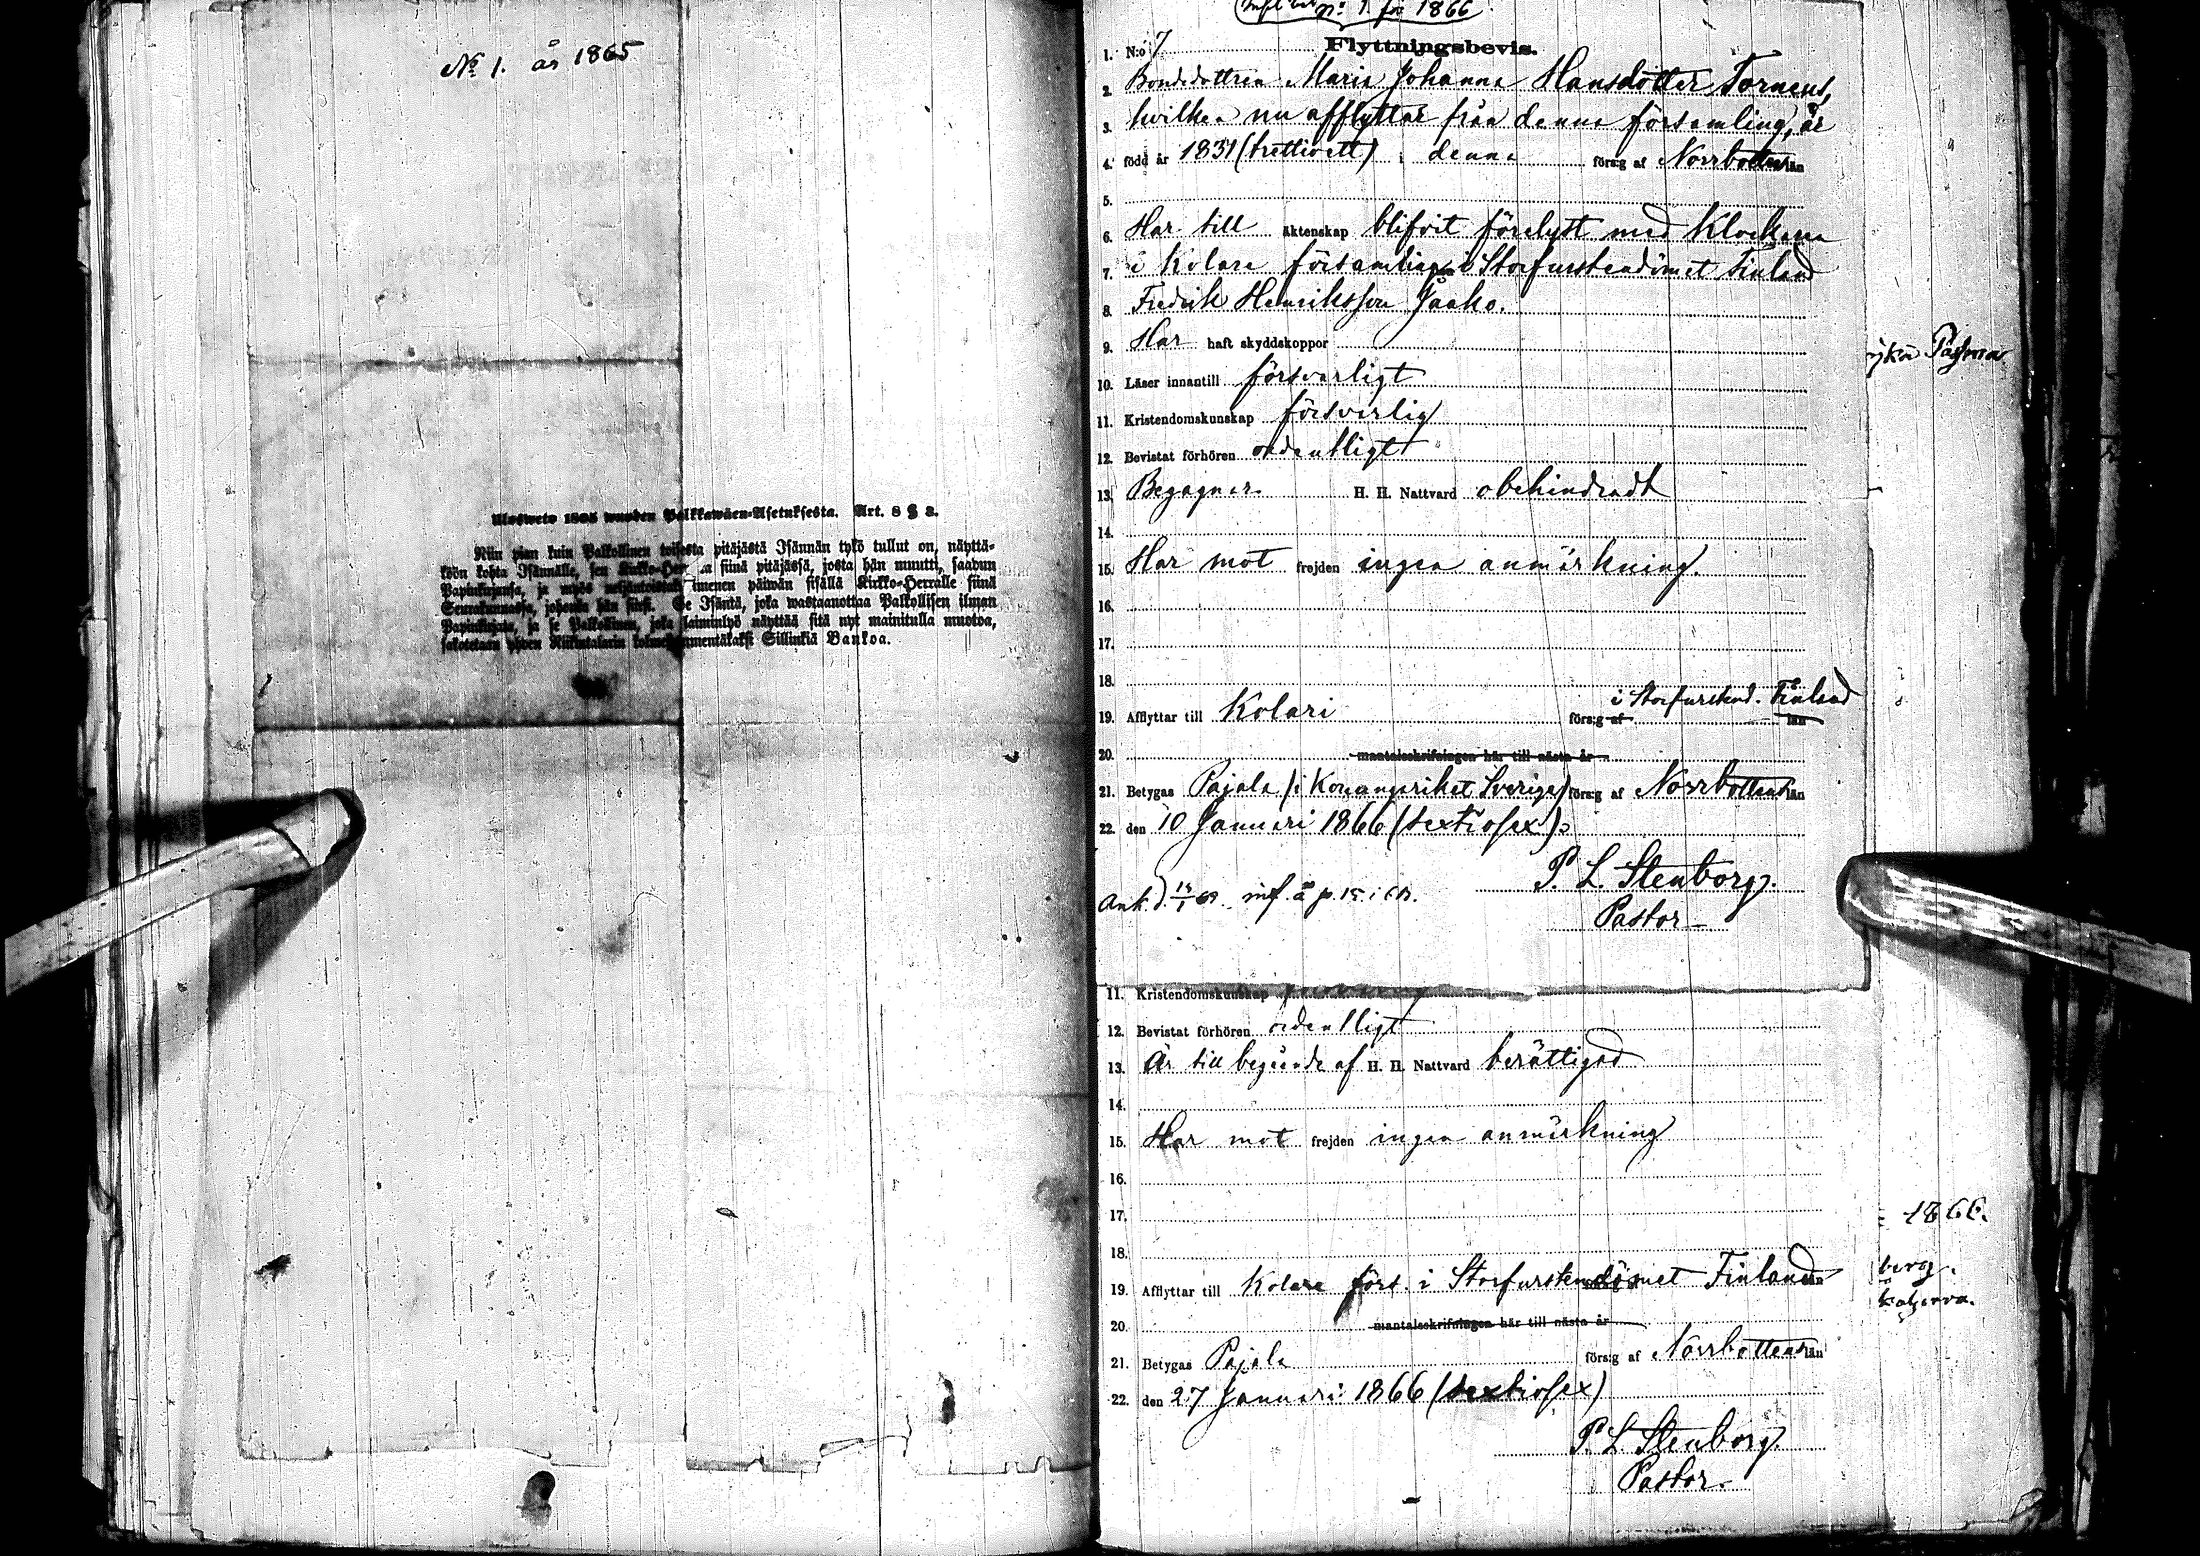 No 1. år 1865
Ulosweto 1805 wuoden Palkkawäen-Asetuksesta. Art. 8 § 3.
Niin pian kuin Palkollinen toisesta pitäjästä Isännän tykö tullut on, näyttä-
köön kohta Isännälle, sen Kirkko-Her a siinä pitäjässä, josta hän muutti, saadun
Papinkirjansa, ja myös neljäntoistak imenen päiwän sisällä Kirkko-Herralle siinä
Seurakunnassa, johonka hän siirsi. Se Isäntä, joka wastaanottaa Palkollisen ilman
Papinkirjata, ja se Palkollinen, joka laiminlyö näyttää sitä nyt mainitulla muotoa,
sakotetaan yhden Riikintalarin kolme mmentäkaksi Sillinkiä Bankoa.
no 1. för 1866
Flyttningsbevis.
1. N:o 7
2. Bondedottren Maria Johanna Hansdotter Torneus,
3. hvilken nu afflyttar från denna församling, är
4. född år 1831 (trettioett) i denna förs:g af Norrbottens län
5.
6. Har till äktenskap blifvit förelyst med Klockaren
7. i Kolare församling i Storfurstendömet Finland
8. Fredrik Henriksson Jaako.
9. Har haft skyddskoppor
10. Läser innantill försvarligt
11. Kristendomskunskap försvarlig
12. Bevistat förhören ordentligt
13. Begagnar H. H. Nattvard obehindradt
14.
15. Har mot frejden ingen anmärkning.
16.
17.
18.
19. Afflyttar till Kolari förs:g af i Storfurstend. Finland län
20. mantalsskrifningen här till nästa år
21. Betygas Pajala (i Konungariket Sverige) förs:g af Norrbottens län
22. den 10 Januari 1866 (sextiosex).
P. L. Stenborg.
Pastor
Ank. d. inf. å p. 15 i
11. Kristendomskunskap
12. Bevistat förhören ordentligt
13. Är till begående af H. H. Nattvard berättigad
14.
15. Har mot frejden ingen anmärkning
16.
17.
18.
19. Afflyttar till Kolare förs. i Storfurstendömet Finland län
20. mantalsskrifningen här till nästa år
21. Betygas Pajala förs:g af Norrbottens län
22. den 27 Januari 1866 (sextiosex)
P. L. Stenborg.
Pastor.
1866.
berg.